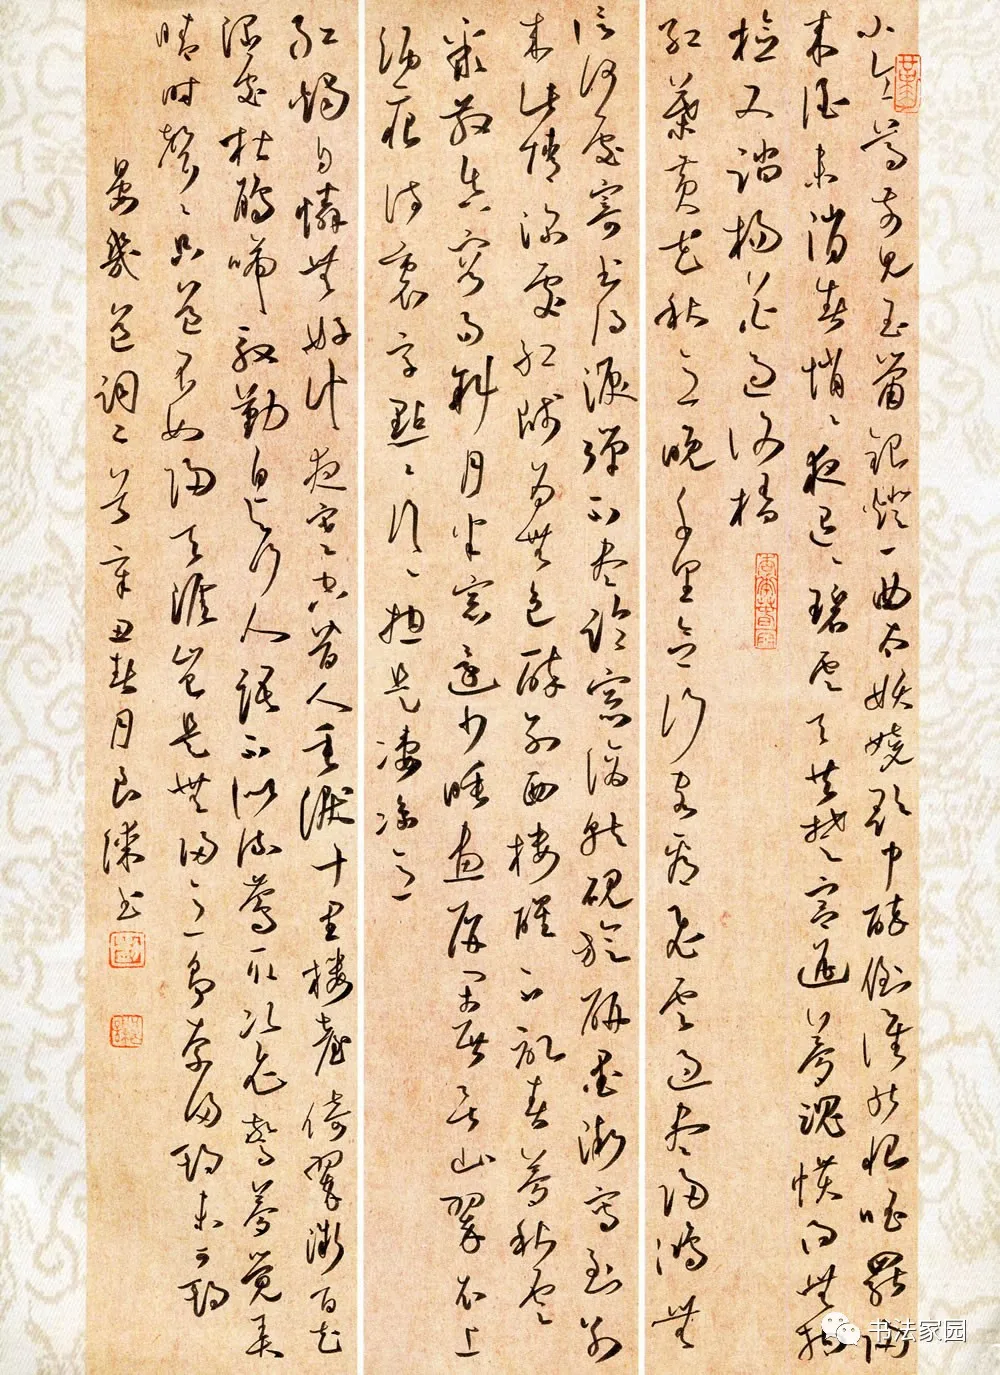 小令尊前見玉簫銀燈一曲太妖嬈歌中醉倒誰能恨唱罷歸
來酒未消春悄悄夜迢迢碧雲天共楚宮遙夢魂慣得無拘
檢又踏楊花過謝橋
紅葉黃花秋意晚千里念行客看飛雲過盡歸鴻無
信何處寄書得淚彈不盡臨窗滴就硯旋研墨漸寫到別
來此情深處紅牋為無色醉別西樓醒不記春夢秋雲
聚散真容易斜月半窗還少睡畫屏閑展吳山翠衣上
酒痕詩裏字點點行行總是淒涼意
紅燭自憐無好計夜寒空替人垂淚十里樓臺倚翠微百花
深處杜鵑啼殷勤自與行人語不似流鶯取次飛驚夢覺弄
晴時聲聲只道不如歸天涯豈是無歸意爭奈歸期未可期
晏幾道詞 首辛丑春月良 書
书法家园